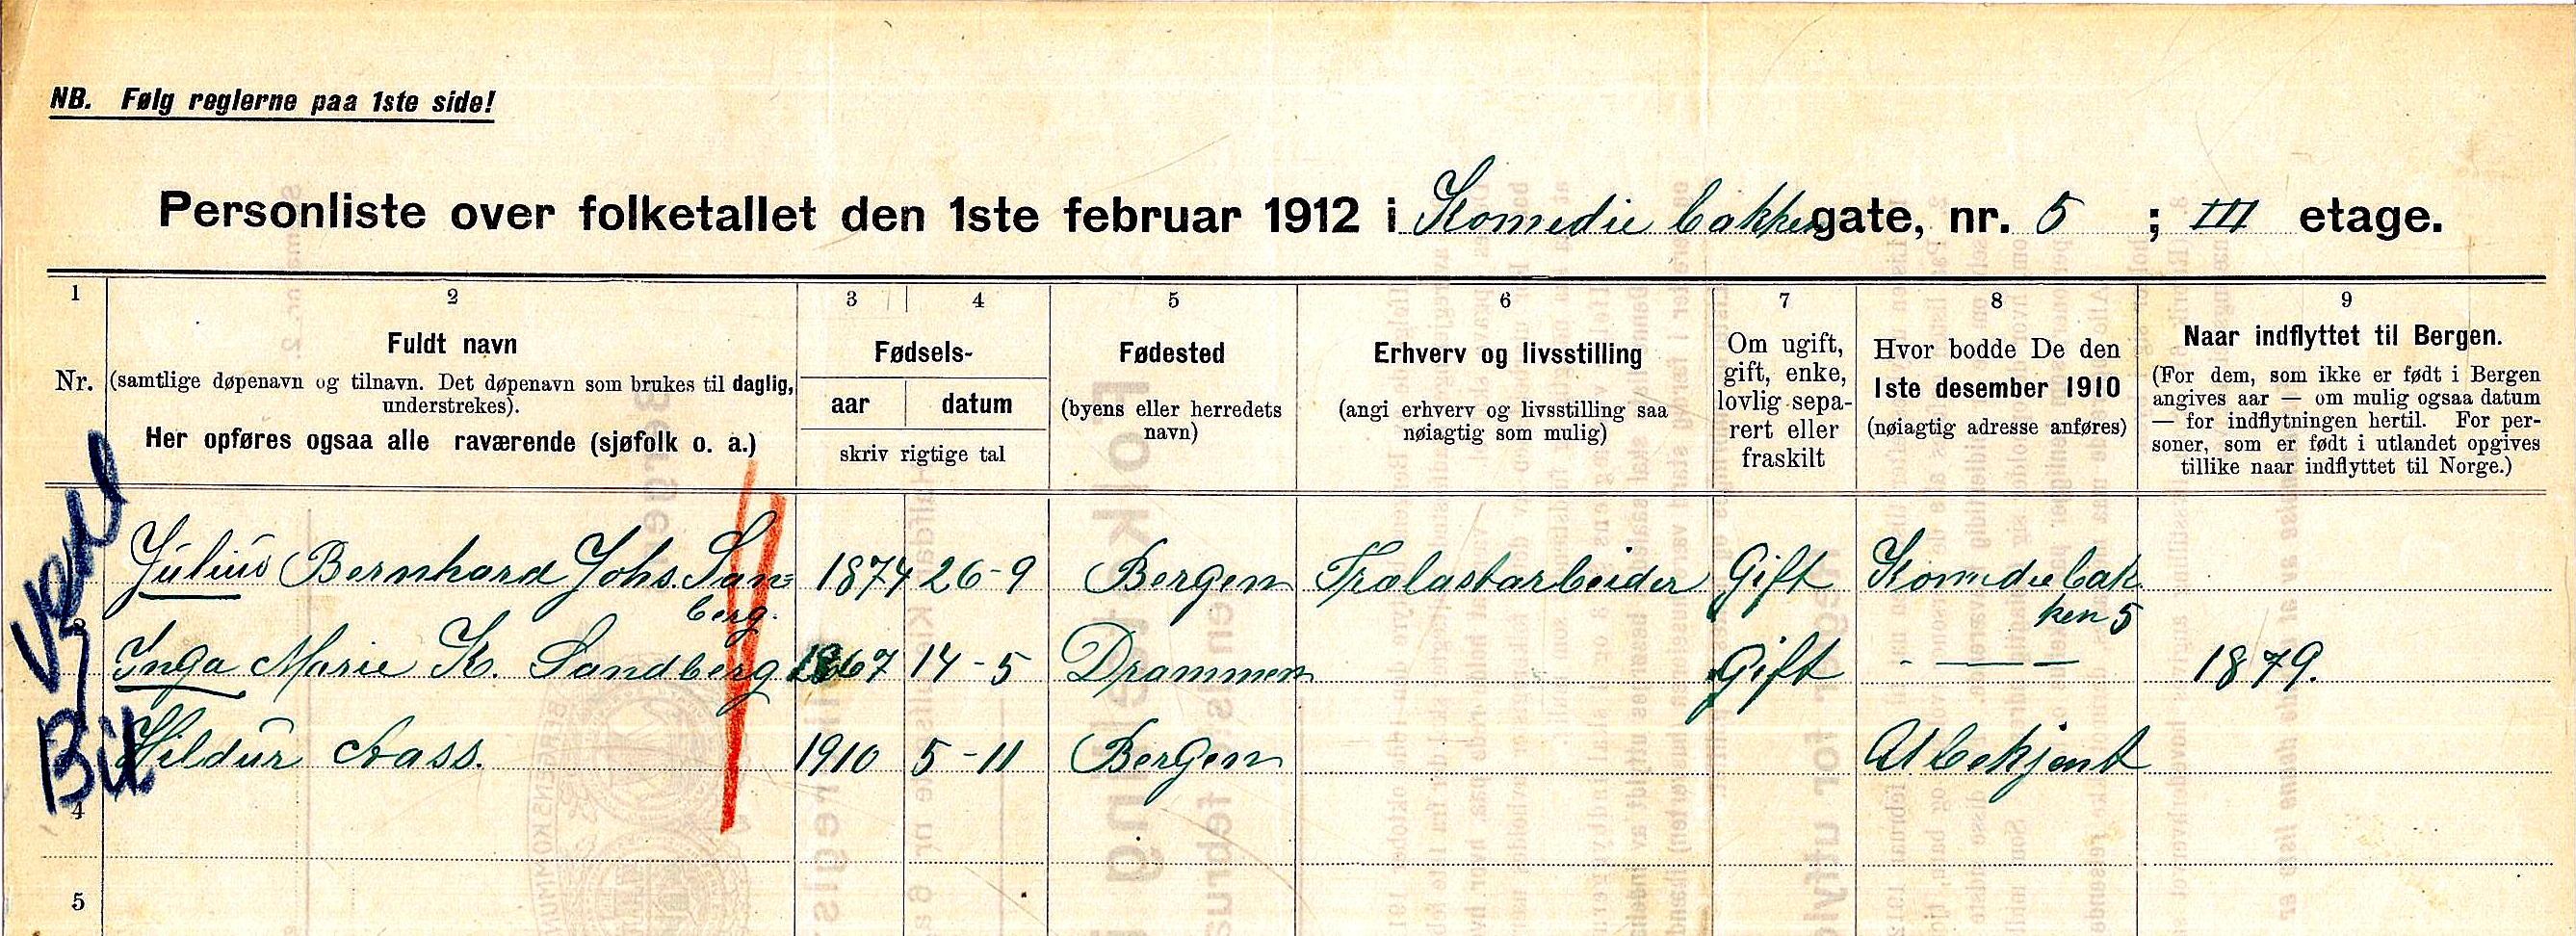 NB. Følg reglerne paa 1ste side!
Personliste over folketallet den 1ste februar 1912 i Komedie bakken gate, nr. 5 ; III etage.
1 2 3 4 5 6 7 8 9
Nr.
Fuldt navn
(samtlige døpenavn og tilnavn. Det døpenavn som brukes til daglig,
understrekes).
Her opføres ogsaa alle raværende (sjøfolk o. a.)
Fødsels-
aar datum
skriv rigtige tal
Fødested
(byens eller herredets
navn)
Erhverv og livsstilling
(angi erhverv og livsstilling saa
nøiagtig som mulig)
Om ugift,
gift, enke,
lovlig sepa-
rert eller
fraskilt
Hvor bodde De den
1ste desember 1910
(nøiagtig adresse anføres)
Naar indflyttet til Bergen.
(For dem, som ikke er født i Bergen
angives aar — om mulig ogsaa datum
— for indflytningen hertil. For per-
soner, som er født i utlandet opgives
tillike naar indflyttet til Norge.)
Julius Bernhard Johs. San= 1874 26-9 Bergen Trælastarbeider Gift Komediebak
berg. ken 5
Inga Marie K. Sandberg 1867 14-5 Drammen Gift - — — 1879.
Hildur Aass. 1910 5-11 Bergen Ubekjent
4
5
Bil